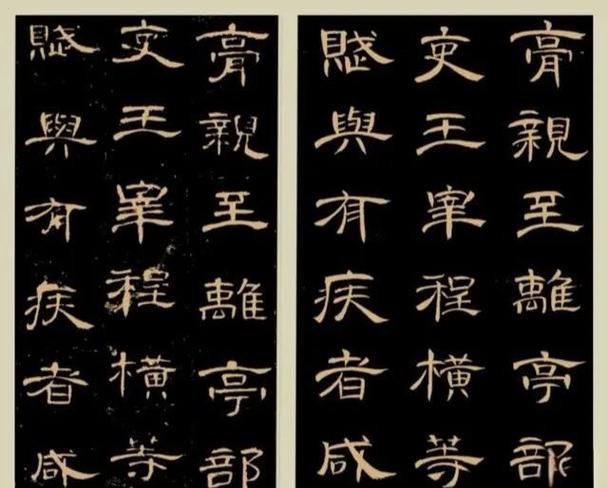 膏親至離亭部
吏王宰程橫等
賦與有疾者咸
膏親至離亭部
吏王宰程橫等
賦與有疾者咸